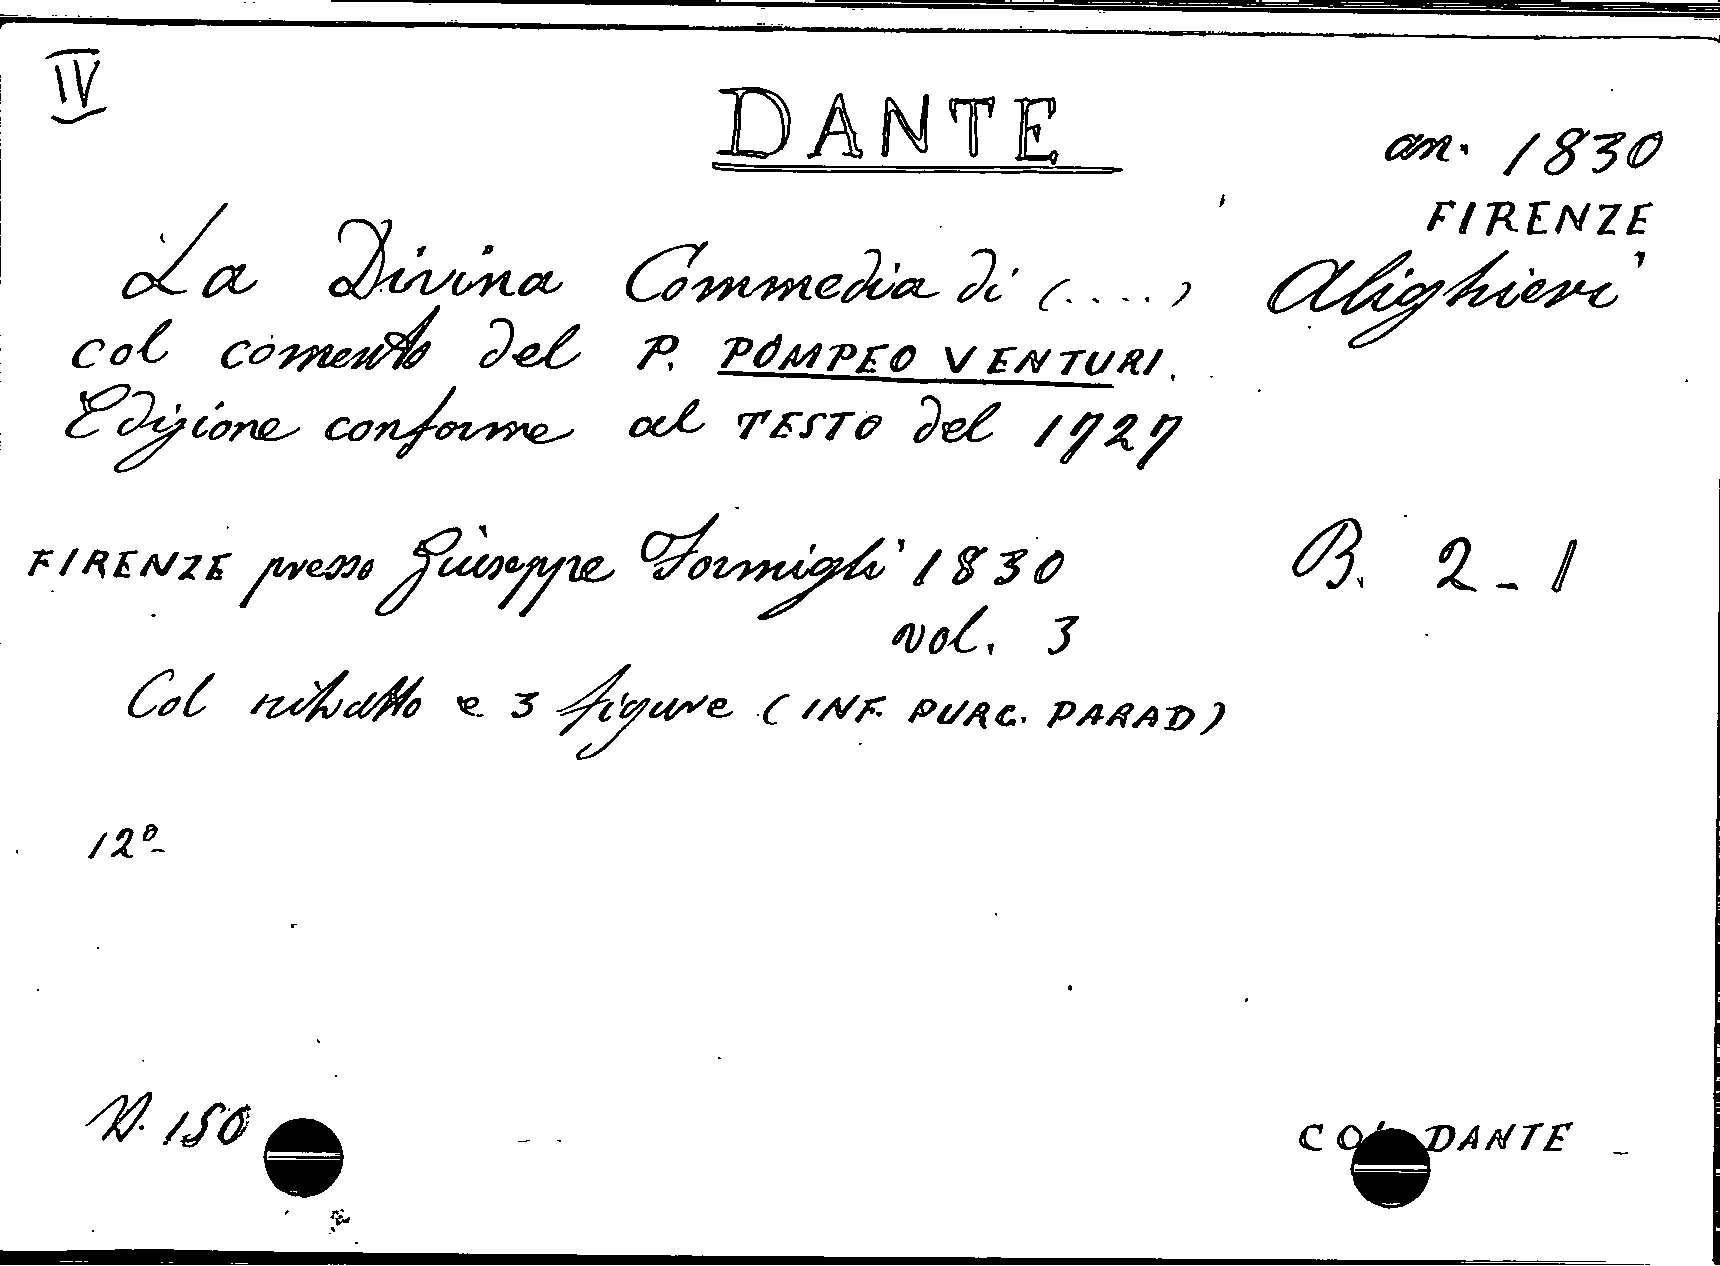 IV
DANTE
an. 1830
FIRENZE
La Divina Commedia di (....) Alighieri
col comento del P. POMPEO VENTURI.
Edizione conforme al TESTO del 1727
FIRENZE presso Giuseppe Formigli 1830 B. 2-1
vol. 3
Col ritratto e 3 figure (INF. PURG. PARAD)
12º
N. 150
DANTE